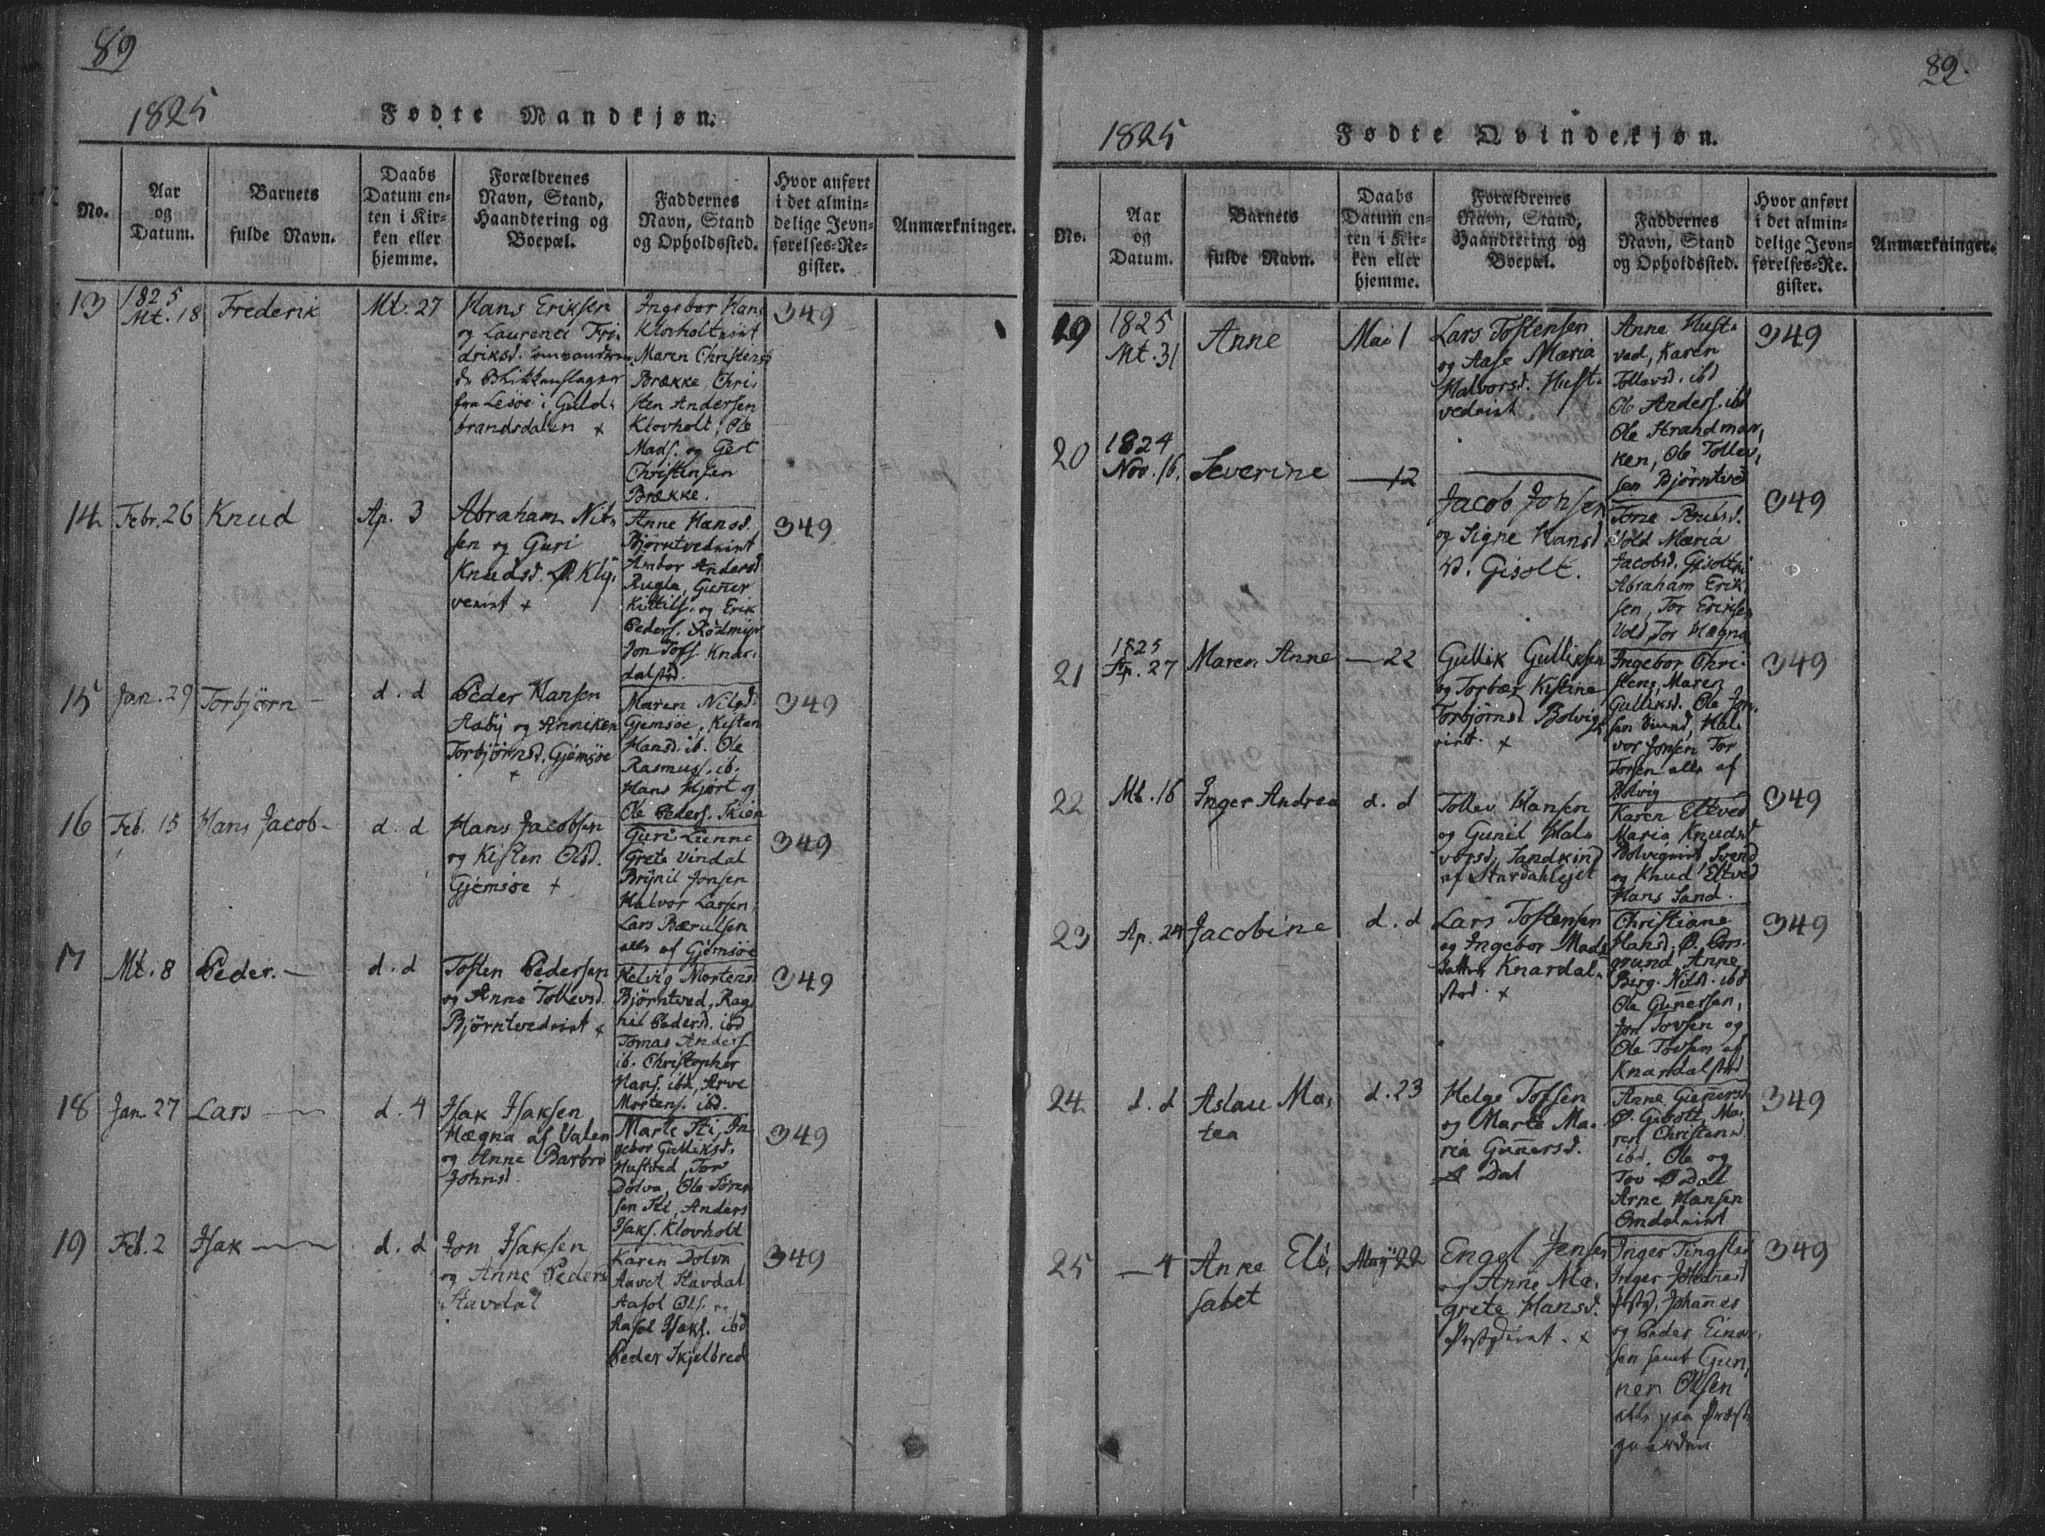 89
1825
Fødte Mandkjøn.
No.
Aar
og
Datum.
Barnets
fulde Navn.
Daabs
Datum en-
ten i Kir-
ken eller
hjemme.
Forældrenes
Navn, Stand,
Haandtering og
Boepæl.
Faddernes
Navn, Stand
og Opholdssted.
Hvor anført
i det almin-
delige Jevn-
førelses-Re-
gister.
Anmærkninger.
13
1825
Mt. 18
Frederik
Mt. 27
Hans Eriksen
og Laurence Fri
driksd.
de Blikkenslager
fra Lesøe i Guld-
brandsdalen +
Ingebor Hans
Klovholteint
Maren Christens
Brække, Chri-
sten Andersen
Klovholt, Ole
Mads. og Gert
Christensen
Brække.
349
14
Febr. 26
Knud
Ap. 3
Abraham Nil-
sen og Guri
Knudsd. Kly-
veeint +
Anne Hansd.
Bjørntvedeint
Ambor Andersd
Rugla, Guner
Kittils. og Erik
Peders. Rødmyr
Jon Tofs Knar-
dalstød.
349
15
Jan. 29
Torbjørn -
d. d
Peder Hansen
Aaby og Anneken
Torbjørnsd. Gjemsøe
+
Maren Nilsd.
Gjemsøe, Kisten
Hansd. ib. Ole
Rasmuss. ib.
Hans Hjort og
Ole Peders. Skien
349
16
Feb. 15
Hans Jacob-
d. d
Hans Jacobsen
og Kisten Olsd.
Gjemsøe +
Guri Lunne
Grete Vindal
Brynil Jonsen
Halvor Larsen,
Lars Bærulsen
alle af Gjemsøe
349
17
Mt. 8
Peder. -
d. d
Tosten Pedersen
og Anne Tollevsd.
Bjørntvedeint +
Helvig Mortensd
Bjørntved, Rag-
nil Pedersd. ibd
Tomas Anders
ib. Christopher
Hans. ibd, Arve
Mortens. ibd.
349
18
Jan. 27
Lars
d. 4
Isak Isaksen
Hægna af Valen
og Anne Barbro
Johnsd.
Marte Sti, In-
gebor Gulliksd.
Hustved, Tov
Dolva, Ole Søren
sen Sti, Anders
Isaks. Klovholt
349
19
Feb. 2
Isak
d. d
Jon Isaksen
og Anne Peders
Stavdal
Karen Dolva
Aavet Stavdal
Aasol Ols. og
Aasol Isaks. ibd
Peder Skjelbred
349
89.
1825
Fødte Qvindekjøn.
No.
Aar
og
Datum.
Barnets
fulde Navn.
Daabs
Datum en-
ten i Kir-
ken eller
hjemme.
Forældrenes
Navn, Stand,
Haandtering og
Boepæl.
Faddernes
Navn, Stand
og Opholdssted.
Hvor anført
i det almin-
delige Jevn-
førelses-Re-
gister.
Anmærkninger.
19
1825
Mt. 31
Anne
Mai 1
Lars Tostensen
og Aase Maria
Halvorsd. Hust-
vedeint.
Anne Hust-
ved, Karen
Tollevsd. ibd
Ole Anders. ibd
Ole Strandmar-
ken, Ole Tollev-
sen Bjørntved
349
20
1824
Nov. 16.
Severine
— 12
Jacob Jonsen
og Signe Hansd
V. Gisolt.
Tone Poulsd.
Vold Maria
Jacobsd. Gisolt
Abraham Erik
sen, Tor Eriksen
Vold Tor Hægna
349
21
1825
Ap. 27
Maren Anne
— 22
Gullik Gulliksen
og Torbær Kistine
Torbjørnsd Bolvigs
eint. +
Ingebor Chri-
stens, Maren
Gulliksd. Ole Jon-
sen Hal-
vor Jonsen Tor
Torsen alle af
Bolvig
349
22
Mt. 16
Inger Andrea
d. d
Tollev Hansen
og Gunil Hal-
vorsd, Sandkind
af Stordahlejet
Karen Eltved
Maria Knudsd
Bolvigeint, Svend
og Knud Eltved
Hans Sand.
349
23
Ap. 24
Jacobine
d. d
Lars Tostensen
og Ingebor Mads
datter Knardal-
stød. +
Christiane
Hansd. Pors-
grund Anne
Berg. Nilsd. ibd
Ole Gunersen,
Jon Tovsen og
Ole Tovsen af
Knardalstød
349
24.
d. d
Aslau Ma-
tea
d. 23
Helge Tofsen
og Marte Ma-
ria Gunersd.
Ø Dal
Anne Gunersd
Ø. Gibolt, Ma-
ren Christensd
ibd. Ole og
Tov Ø Dal
Arne Hansen
Omdaleint
349
25
— 4
Anne Eli-
sabet
22
Engel Jensen
og Anne Ma-
grete Hansd.
Præstgeint. +
Inger Tingstad
Inger Johannesd
Johannes
og Peder Einar-
sen samt Gun-
ner Olsen
alle paa Præst-
gaarden
349